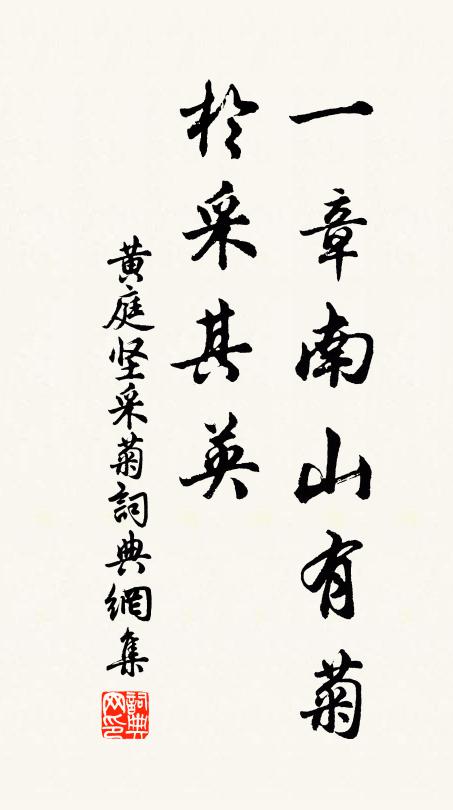 一章南山有菊
於采其英
黄庭坚采菊詞典網集
詞典网印